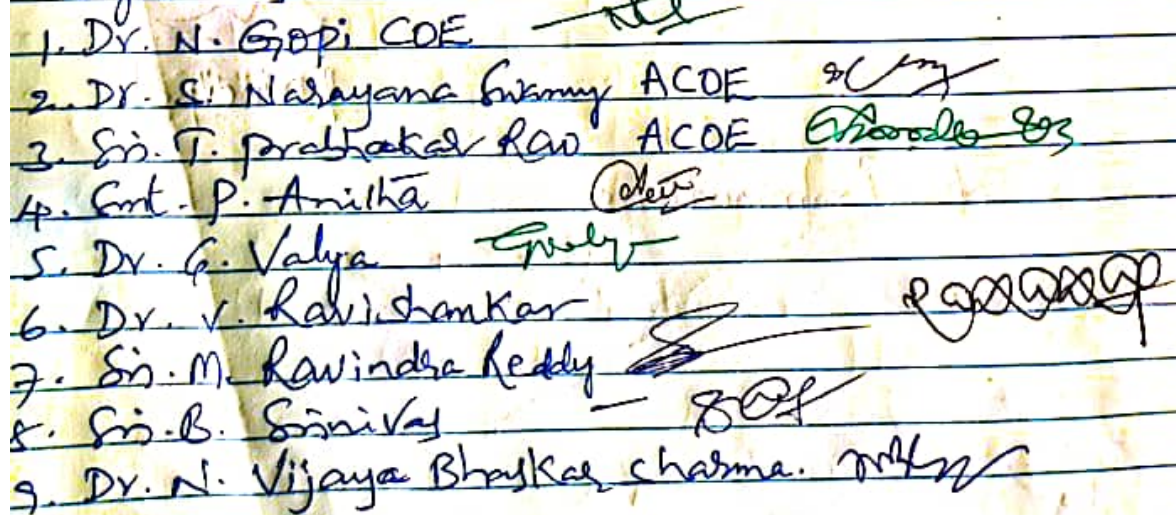 1. Dr. N. Gopi COE
2. Dr. S. Narayana Swamy ACOE
3. Sri. T. Prabhakar Rao ACOE
4. Smt. P. Anitha
5. Dr. G. Valya
6. Dr. V. Ravishankar
7. Sri. M. Ravindra Reddy
8. Sri. B. Srinivas
9. Dr. N. Vijaya Bhaskar Sharma.